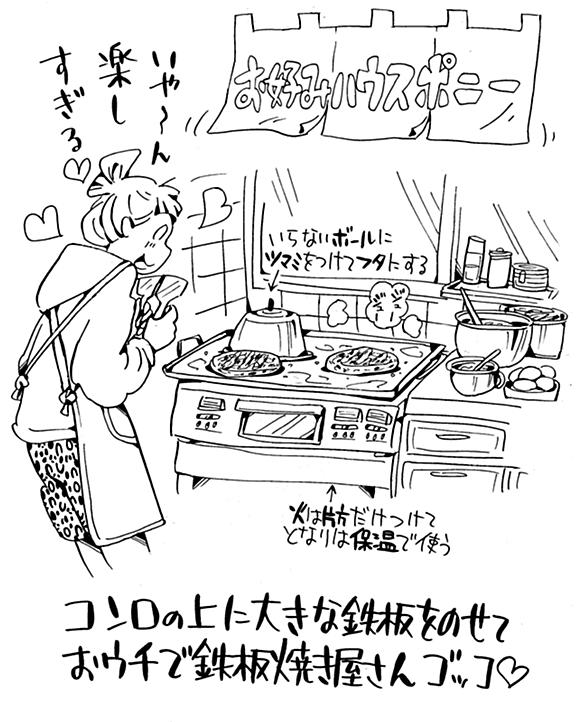 お好みハウスポニー
いや〜ん
楽し
すぎる♡
いらないボールに
ツマミをつけてフタにする
火は片方だけつけて
となりは保温で使う
コンロの上に大きな鉄板をのせて
おウチで鉄板焼き屋さんゴッコ♡